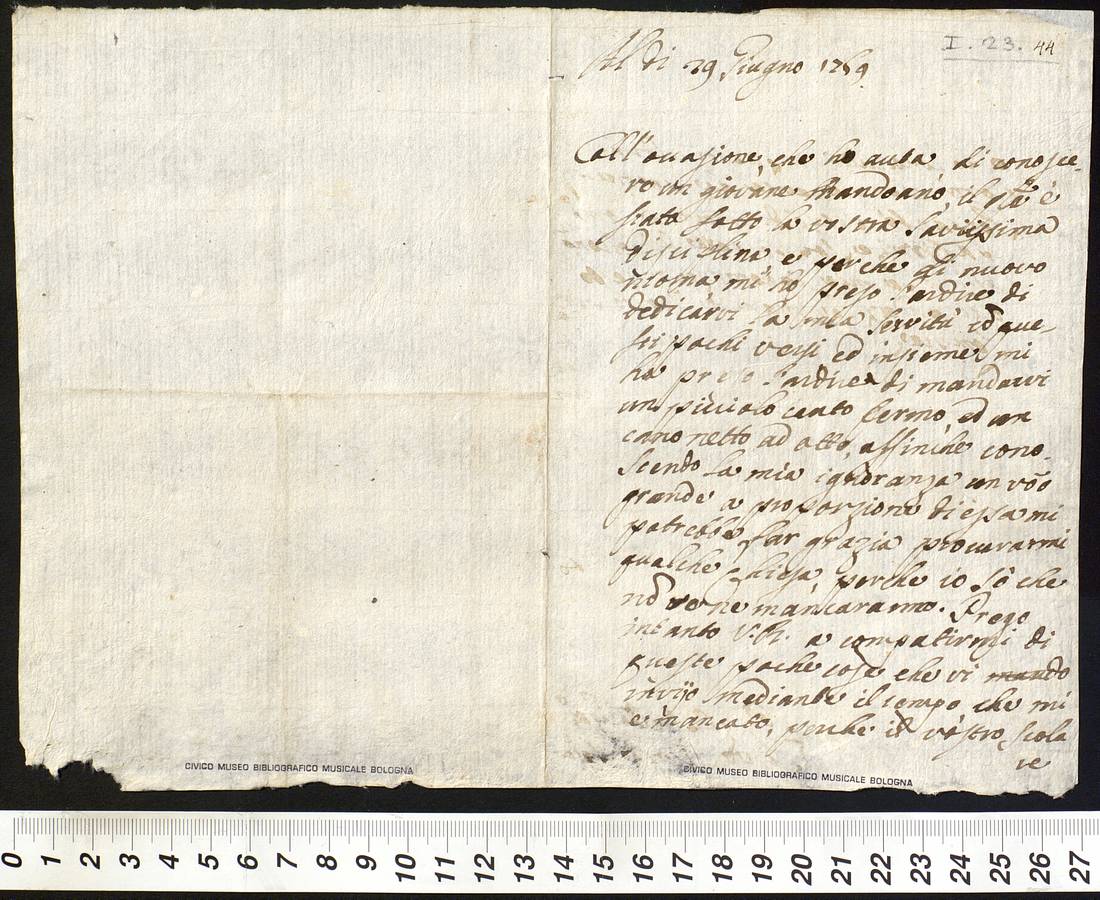 I. 23. 44
Al di 29 Giugno 1759
Coll'occasione, che ho auta di conosce-
re un giovine Mandoano, il qle è
stato sotto la vostra saviissima
disciplina e perche di nuovo
ritorna mi ho preso l'ardire di
dedicarvi la mia servitù cō que-
sti pochi versi ed insieme mi
ho preso l'ardire di mandarvi
un picciolo canto fermo, ed un
canonetto ad otto, affinche cono-
scendo la mia ignoranza un vō
grande a proporzione di essa mi
potrebbe far grazia procurarmi
qualche chiesa, perche io sò che
nō ve ne mancaranno. Prego
intanto V. R. a compatirmi di
queste poche cose che vi mando
invijo mediante il tempo che mi
è mancato, perche il vostro scola
re
CIVICO MUSEO BIBLIOGRAFICO MUSICALE BOLOGNA
CIVICO MUSEO BIBLIOGRAFICO MUSICALE BOLOGNA
0 1 2 3 4 5 6 7 8 9 10 11 12 13 14 15 16 17 18 19 20 21 22 23 24 25 26 27